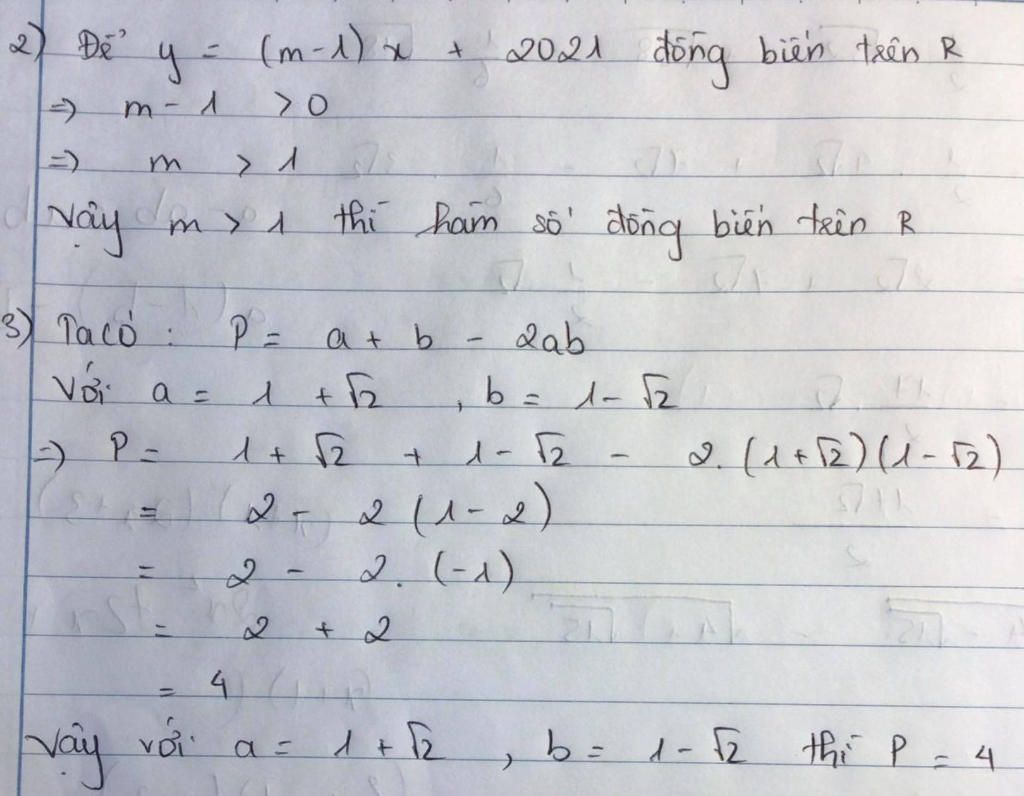 2) Để y = (m-1)x + 2021 đồng biến trên R
=> m - 1 > 0
=> m > 1
Vậy m > 1 thì hàm số đồng biến trên R
3) Ta có : P = a + b - 2ab
Với a = 1 + √2 , b = 1 - √2
=> P = 1 + √2 + 1 - √2 - 2.(1+√2)(1-√2)
= 2 - 2 (1 - 2)
= 2 - 2. (-1)
= 2 + 2
= 4
Vậy với a = 1 + √2 , b = 1 - √2 thì P = 4